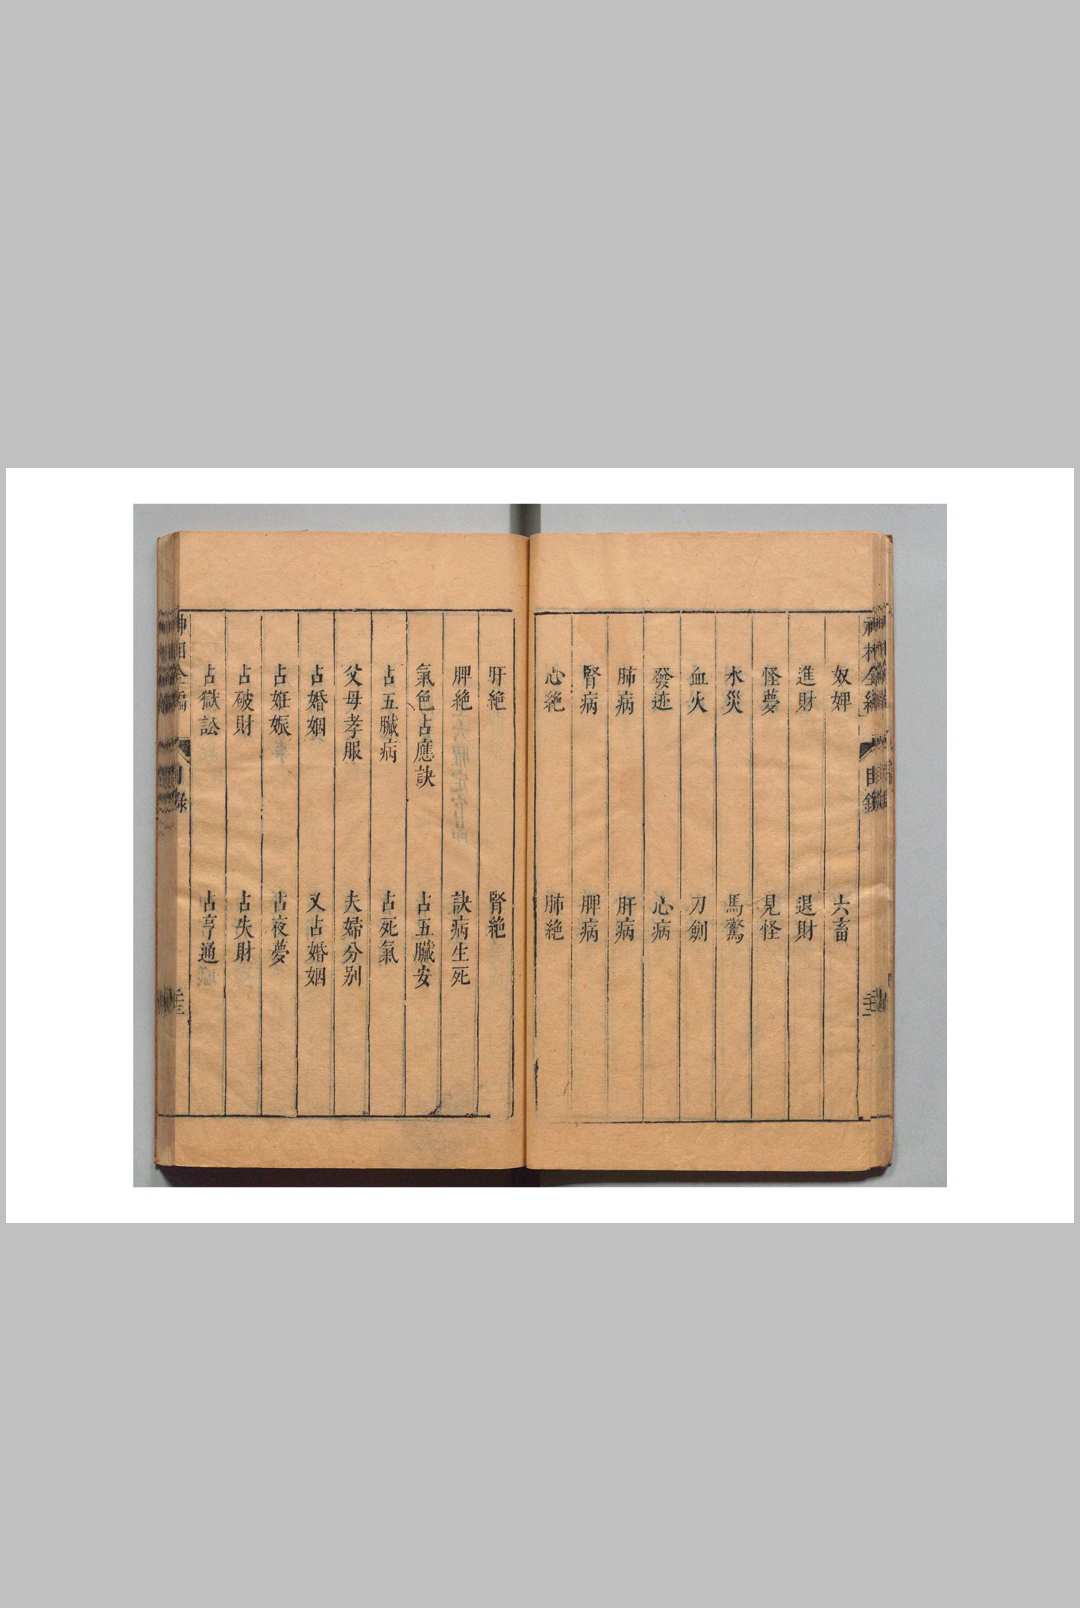 奴婢 六畜
進財 退財
怪夢 見怪
水災 馬驚
血火 刀劍
發迹 心病
肺病 肝病
腎病 脾病
心絶 肺絶
肝絶 腎絶
脾絶 訣病生死
氣色占應訣 占五臟安
占五臟病 占死氣
父母孝服 夫婦分别
占婚姻 又占婚姻
占妊娠 占夜夢
占破財 占失財
占獄訟 占亨通
神相全編 目錄